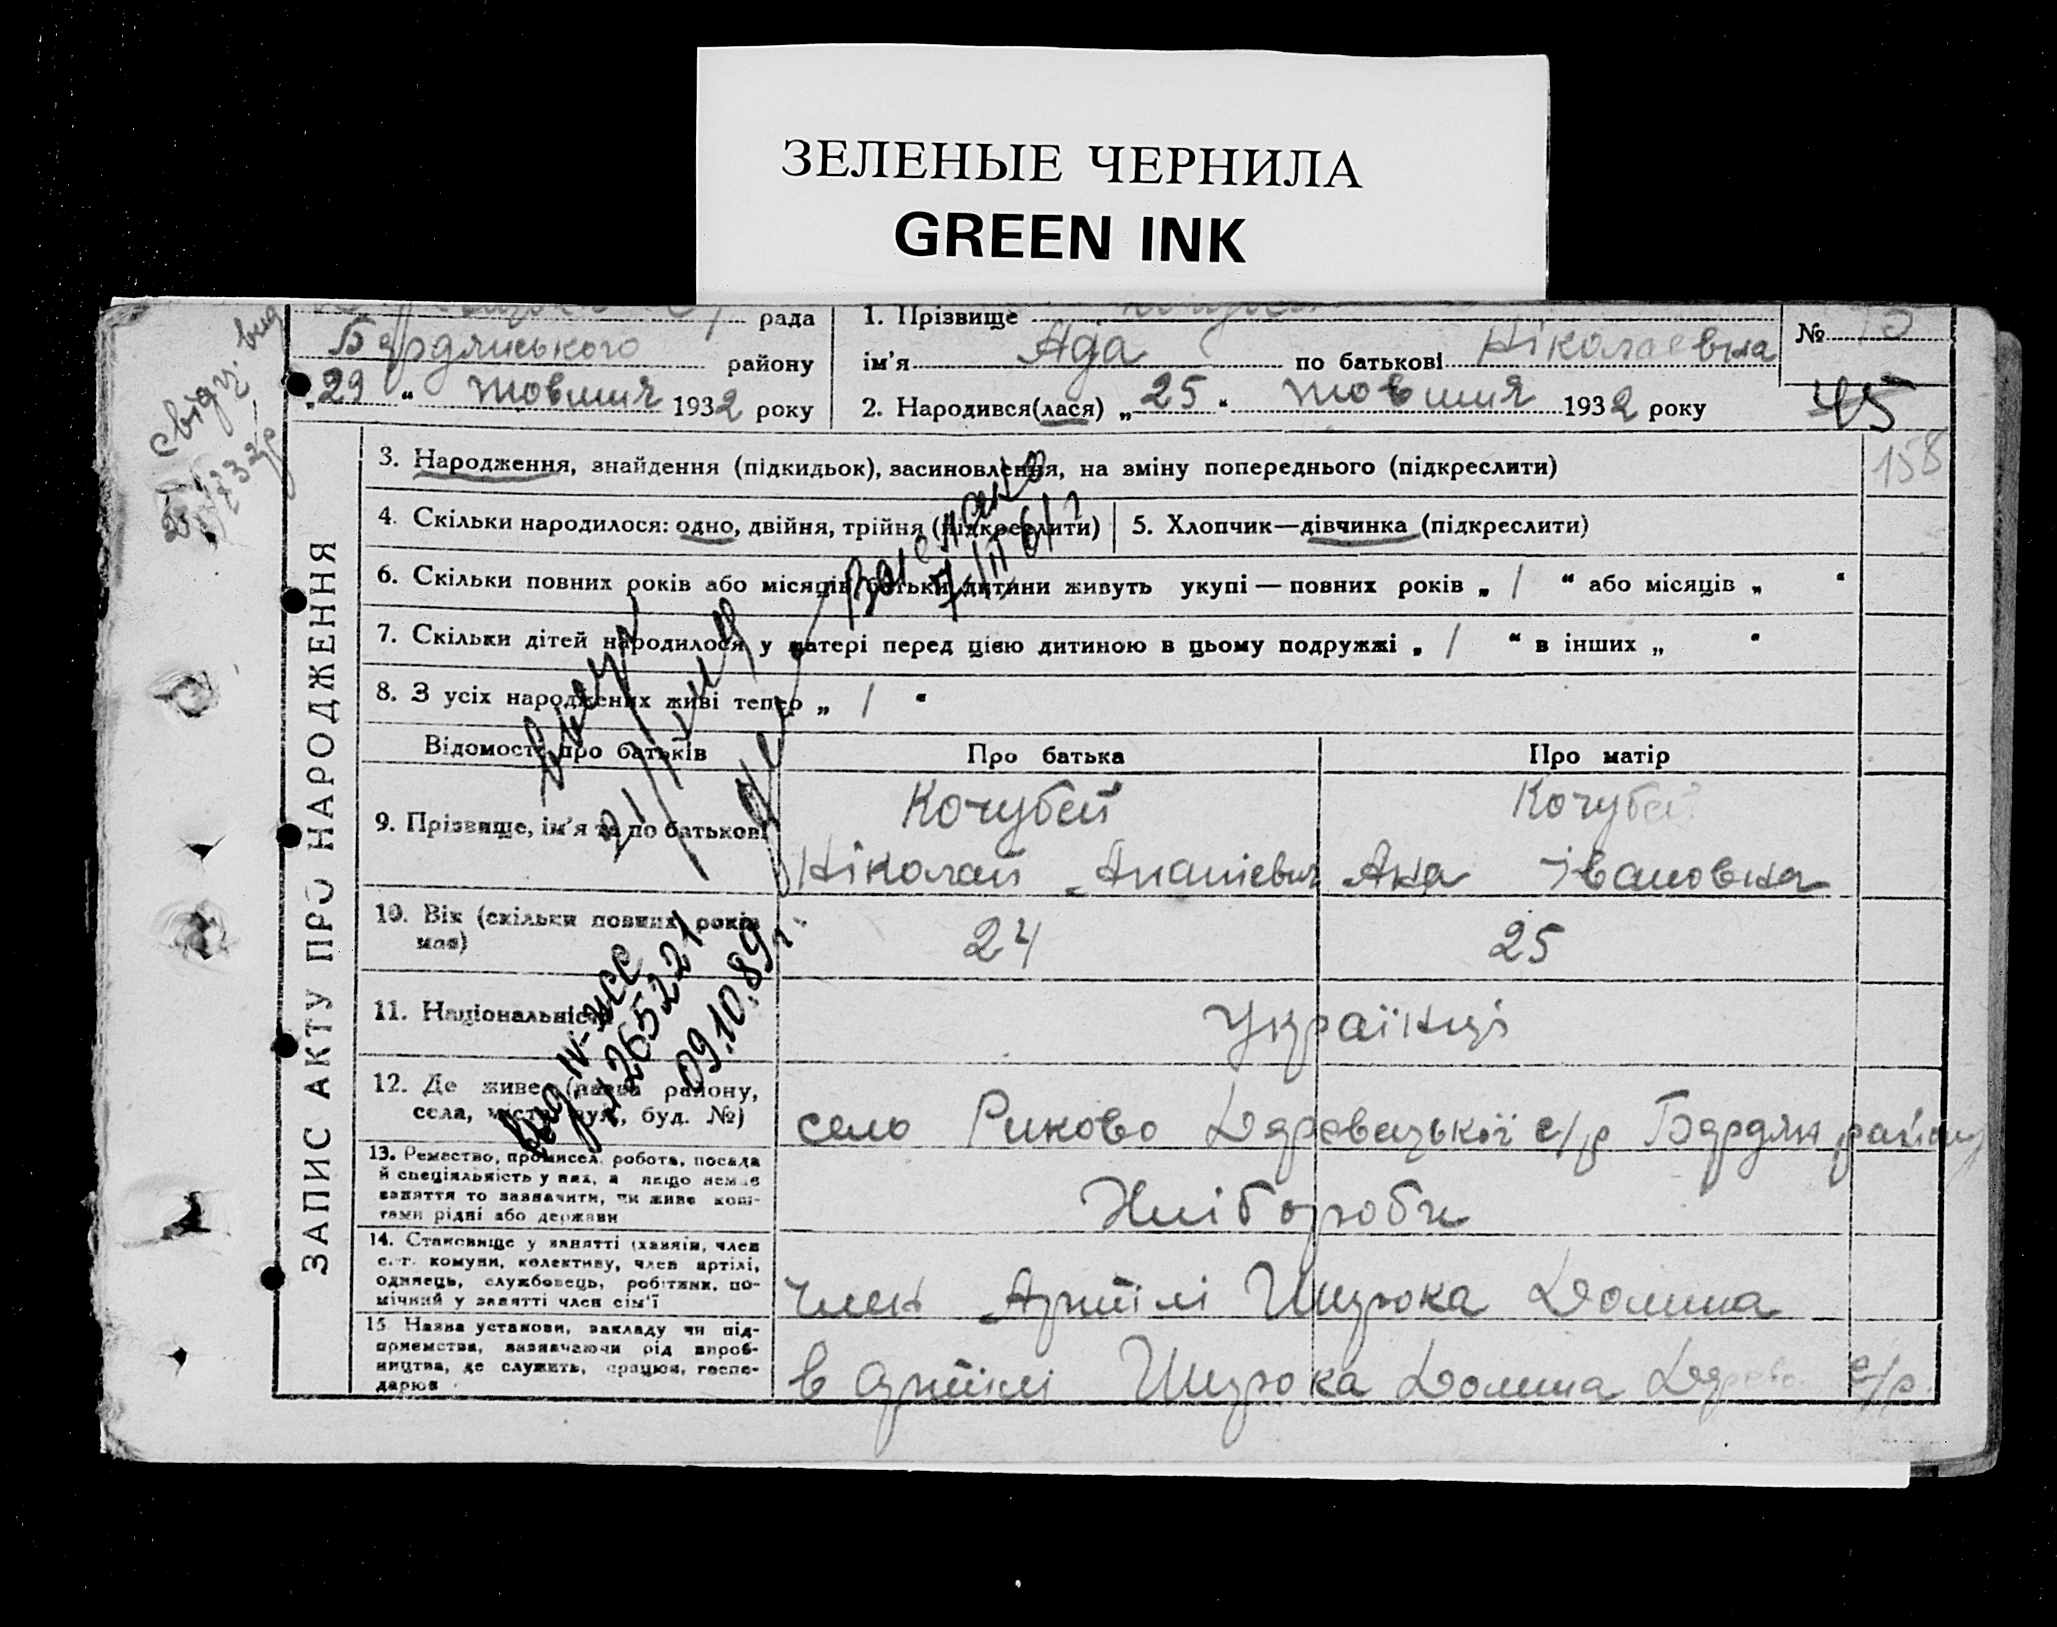 ЗЕЛЕНЫЕ ЧЕРНИЛА
GREEN INK
рада
Бердянського району
„29“ жовтня 1932 року
1. Прізвище
ім’я Ада по батькові Ніколаевна
2. Народився(лася) „25“ жовтня 1932 року
№
45
158
свідч. вид
ЗАПИС АКТУ ПРО НАРОДЖЕННЯ
3. Народження, знайдення (підкидьок), засиновлення, на зміну попереднього (підкреслити)
4. Скільки народилося: одно, двійня, трійня (підкреслити)
5. Хлопчик—дівчинка (підкреслити)
6. Скільки повних років або місяців батьки дитини живуть укупі — повних років „ / “ або місяців „ “
7. Скільки дітей народилося у матері перед цією дитиною в цьому подружжі „ / “ в інших „ “
8. З усіх народжених живі тепер „ / “
Відомості про батьків Про батька Про матір
9. Прізвище, ім’я та по батькові
Кочубей
Ніколай Ананіевич
Кочубей
Івановна
10. Вік (скільки повних років має)
24 25
11. Національність
Українці
12. Де живе (назва району,
села, міста, вул., буд. №)
село Риково с/р Бердян району
13. Ремество, промисел, робота, посада
й спеціяльність у них, а якщо немає
заняття то зазначити, чи живе кош-
тами рідні або держави
Хлібороби
14. Становище у занятті (хазяїн, член
с.-г. комуни, колективу, член артілі,
одинець, службовець, робітник, по-
мічний у занятті член сім’ї
член Артілі Широка Долина
15. Назва установи, закладу чи під-
приємства, визначаючи рід вироб-
ництва, де служить, працює, госпо-
дарює
в артілі Широка Долина с/р.
7/II 61 г
265221
09.10.89г.